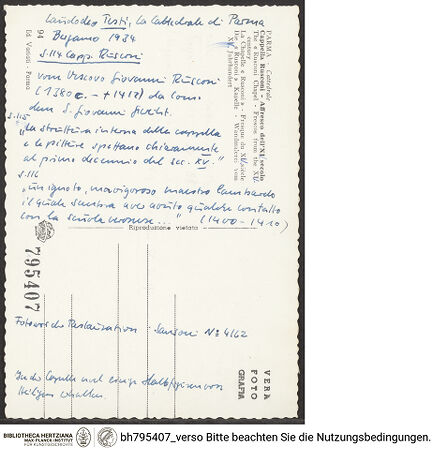 Laudedeo Testi, La Cattedrale di Parma
Bergamo 1934
S.114 Capp. Rusconi
vom Vescovo Giovanni Rusconi
(1380 c. - +1412) da Como
dem S. Giovanni
S.115
"La struttura interna della cappella
e le pitture spettano chiaramente
al primo decennio del sec. XV."
S.116
"un ignoto, ma vigoroso maestro lombardo
il quale sembra aver avuto qualche contatto
con la scuola veronese..." (1400-1410)
PARMA - Cattedrale
Cappella Rusconi - Affresco dell'XI secolo
The «Rusconi» Chapel - Frescoe from the XI
century
La Chapelle «Rusconi» - Fresque du XI siècle
Die «Rusconi» Kapelle - Wandmalerei vom
XI Jahrhundert
94
Ed. - Parma
Riproduzione vietata
795407
Fotovorlage Restauration Sansoni Nr 4162
In der Capelle noch einige Halbfiguren von
Heiligen erhalten.
VERA
FOTO
GRAFIA
BIBLIOTHECA HERTZIANA
MAX-PLANCK-INSTITUT
FÜR KUNSTGESCHICHTE
bh795407_verso Bitte beachten Sie die Nutzungsbedingungen.